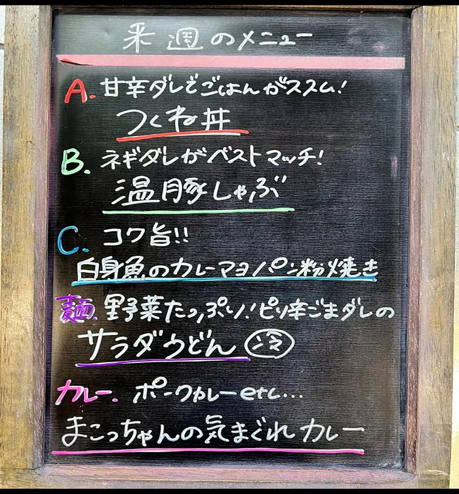 来週のメニュー
A. 甘辛ダレでごはんがススム!
つくね丼
B. ネギダレがベストマッチ!
温豚しゃぶ
C. コク旨!!
白身魚のカレーマヨパン粉焼き
麺. 野菜たっぷり!ピリ辛ごまダレの
サラダうどん 冷
カレー. ポークカレーetc...
まこっちゃんの気まぐれカレー